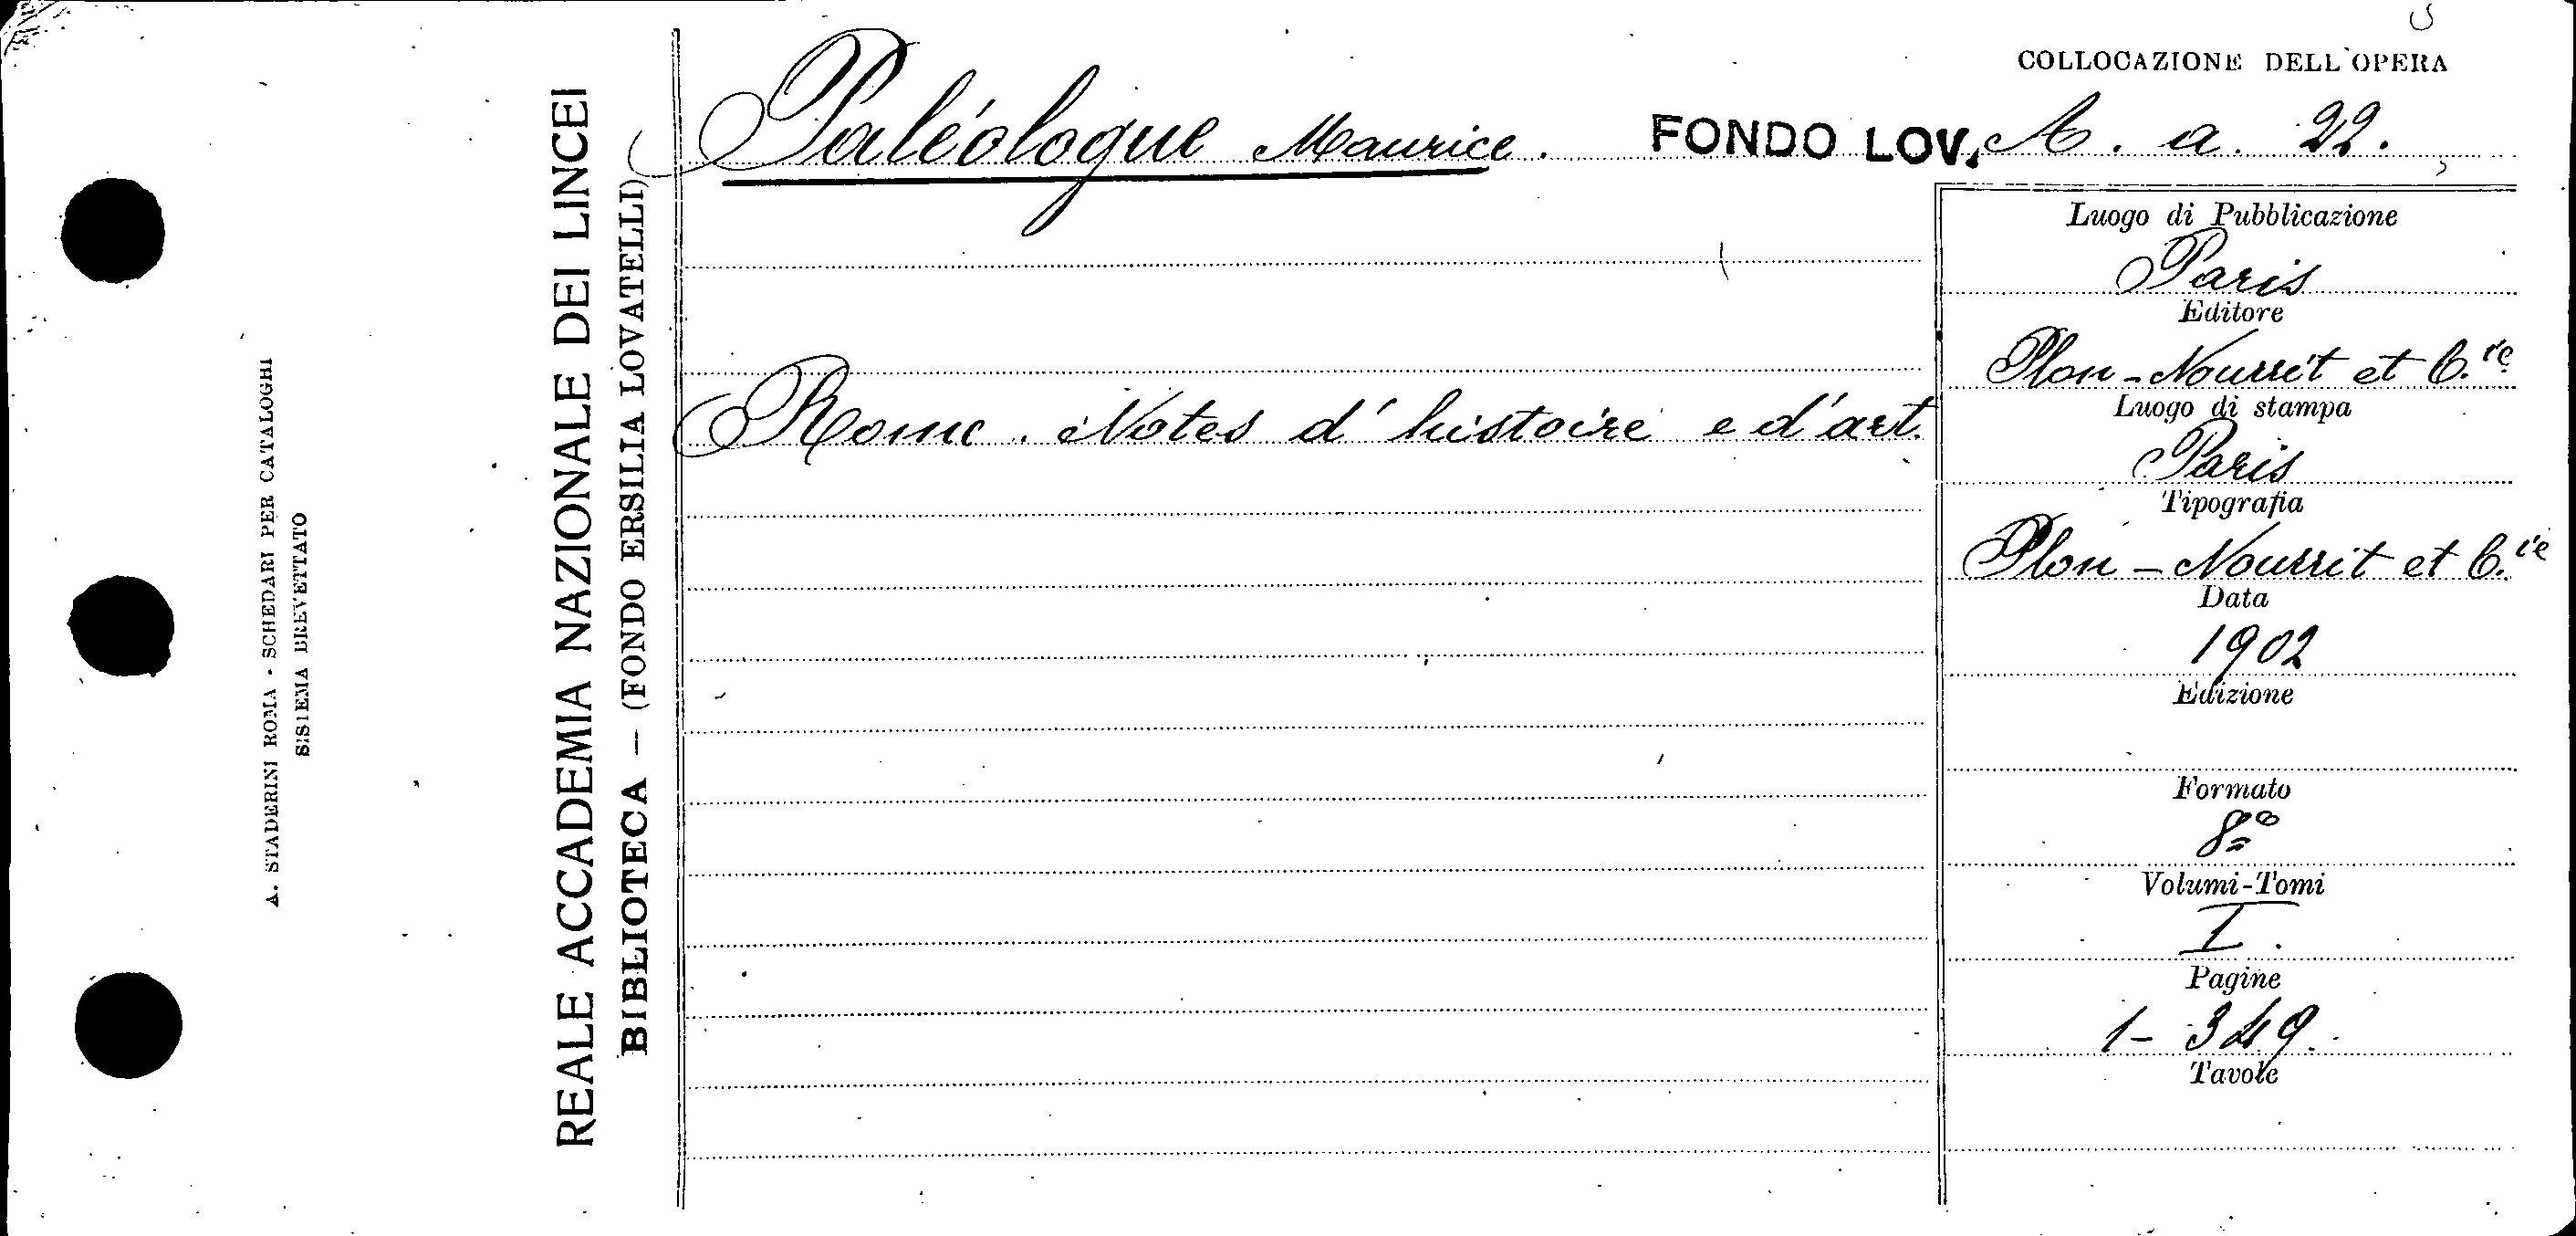 COLLOCAZIONE DELL'OPERA
Paléologue Maurice. FONDO LOV. A. a. 22.
Rome. Notes d'histoire e d'art.
Luogo di Pubblicazione
Paris
Editore
Plon-Nourrit et C.ie
Luogo di stampa
Paris
Tipografia
Plon-Nourrit et C.ie
Data
1902
Edizione
Formato
8º
Volumi-Tomi
I.
Pagine
1-349.
Tavole
REALE ACCADEMIA NAZIONALE DEI LINCEI
BIBLIOTECA — (FONDO ERSILIA LOVATELLI)
A. STADERINI ROMA - SCHEDARI PER CATALOGHI
SISTEMA BREVETTATO